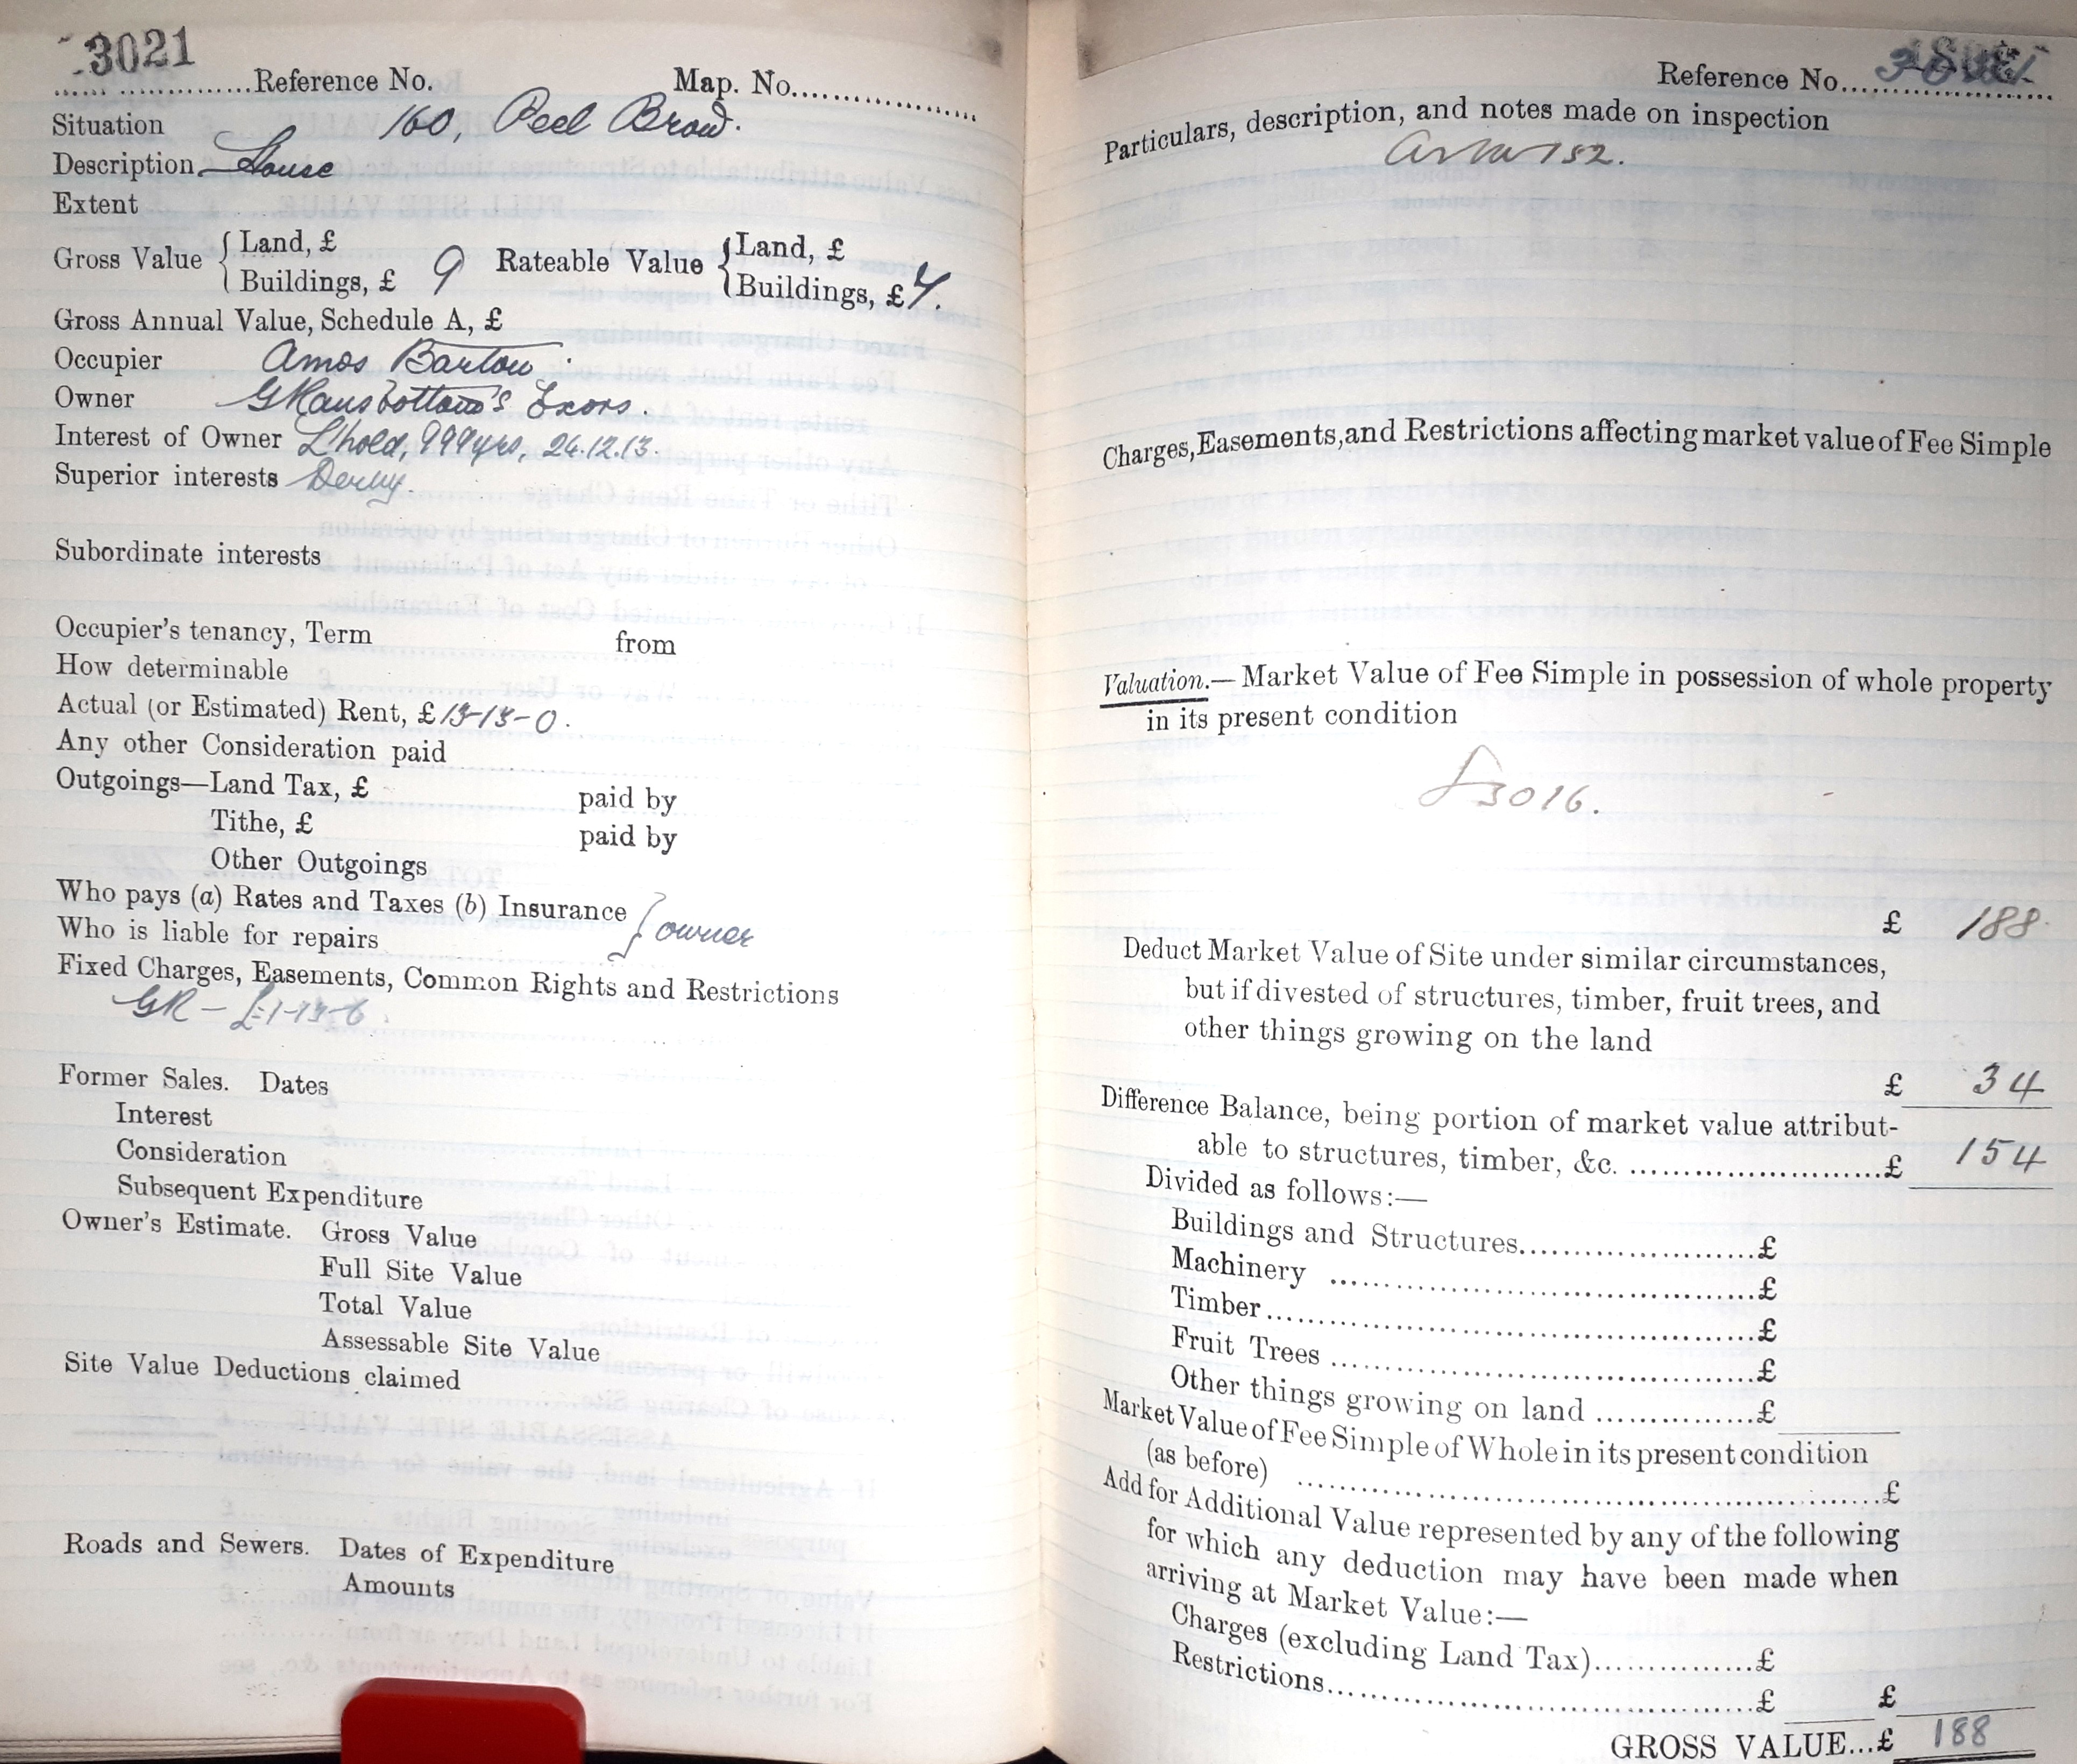 3021
Reference No. Map. No.
Situation 160, Peel Brow.
Description House
Extent
Gross Value { Land, £ Rateable Value { Land, £
Buildings, £ 9 Buildings, £ 7.
Gross Annual Value, Schedule A, £
Occupier Amos Barlow.
Owner G Ramsbottom's Exors.
Interest of Owner L'hold, 999 yrs, 26.12.13.
Superior interests Derby.
Subordinate interests
Occupier's tenancy, Term from
How determinable
Actual (or Estimated) Rent, £ 13-13-0.
Any other Consideration paid
Outgoings—Land Tax, £ paid by
Tithe, £ paid by
Other Outgoings
Who pays (a) Rates and Taxes (b) Insurance
Who is liable for repairs } owner
Fixed Charges, Easements, Common Rights and Restrictions
GR - £1-13-6
Former Sales. Dates
Interest
Consideration
Subsequent Expenditure
Owner's Estimate. Gross Value
Full Site Value
Total Value
Assessable Site Value
Site Value Deductions claimed
Roads and Sewers. Dates of Expenditure
Amounts
Reference No.
Particulars, description, and notes made on inspection
152.
Charges, Easements, and Restrictions affecting market value of Fee Simple
Valuation.—Market Value of Fee Simple in possession of whole property
in its present condition
3016.
£ 188
Deduct Market Value of Site under similar circumstances,
but if divested of structures, timber, fruit trees, and
other things growing on the land
£ 34
Difference Balance, being portion of market value attribut-
able to structures, timber, &c. £ 154
Divided as follows:—
Buildings and Structures £
Machinery £
Timber £
Fruit Trees £
Other things growing on land £
Market Value of Fee Simple of Whole in its present condition
(as before) £
Add for Additional Value represented by any of the following
for which any deduction may have been made when
arriving at Market Value:—
Charges (excluding Land Tax) £
Restrictions £ £
GROSS VALUE...£ 188